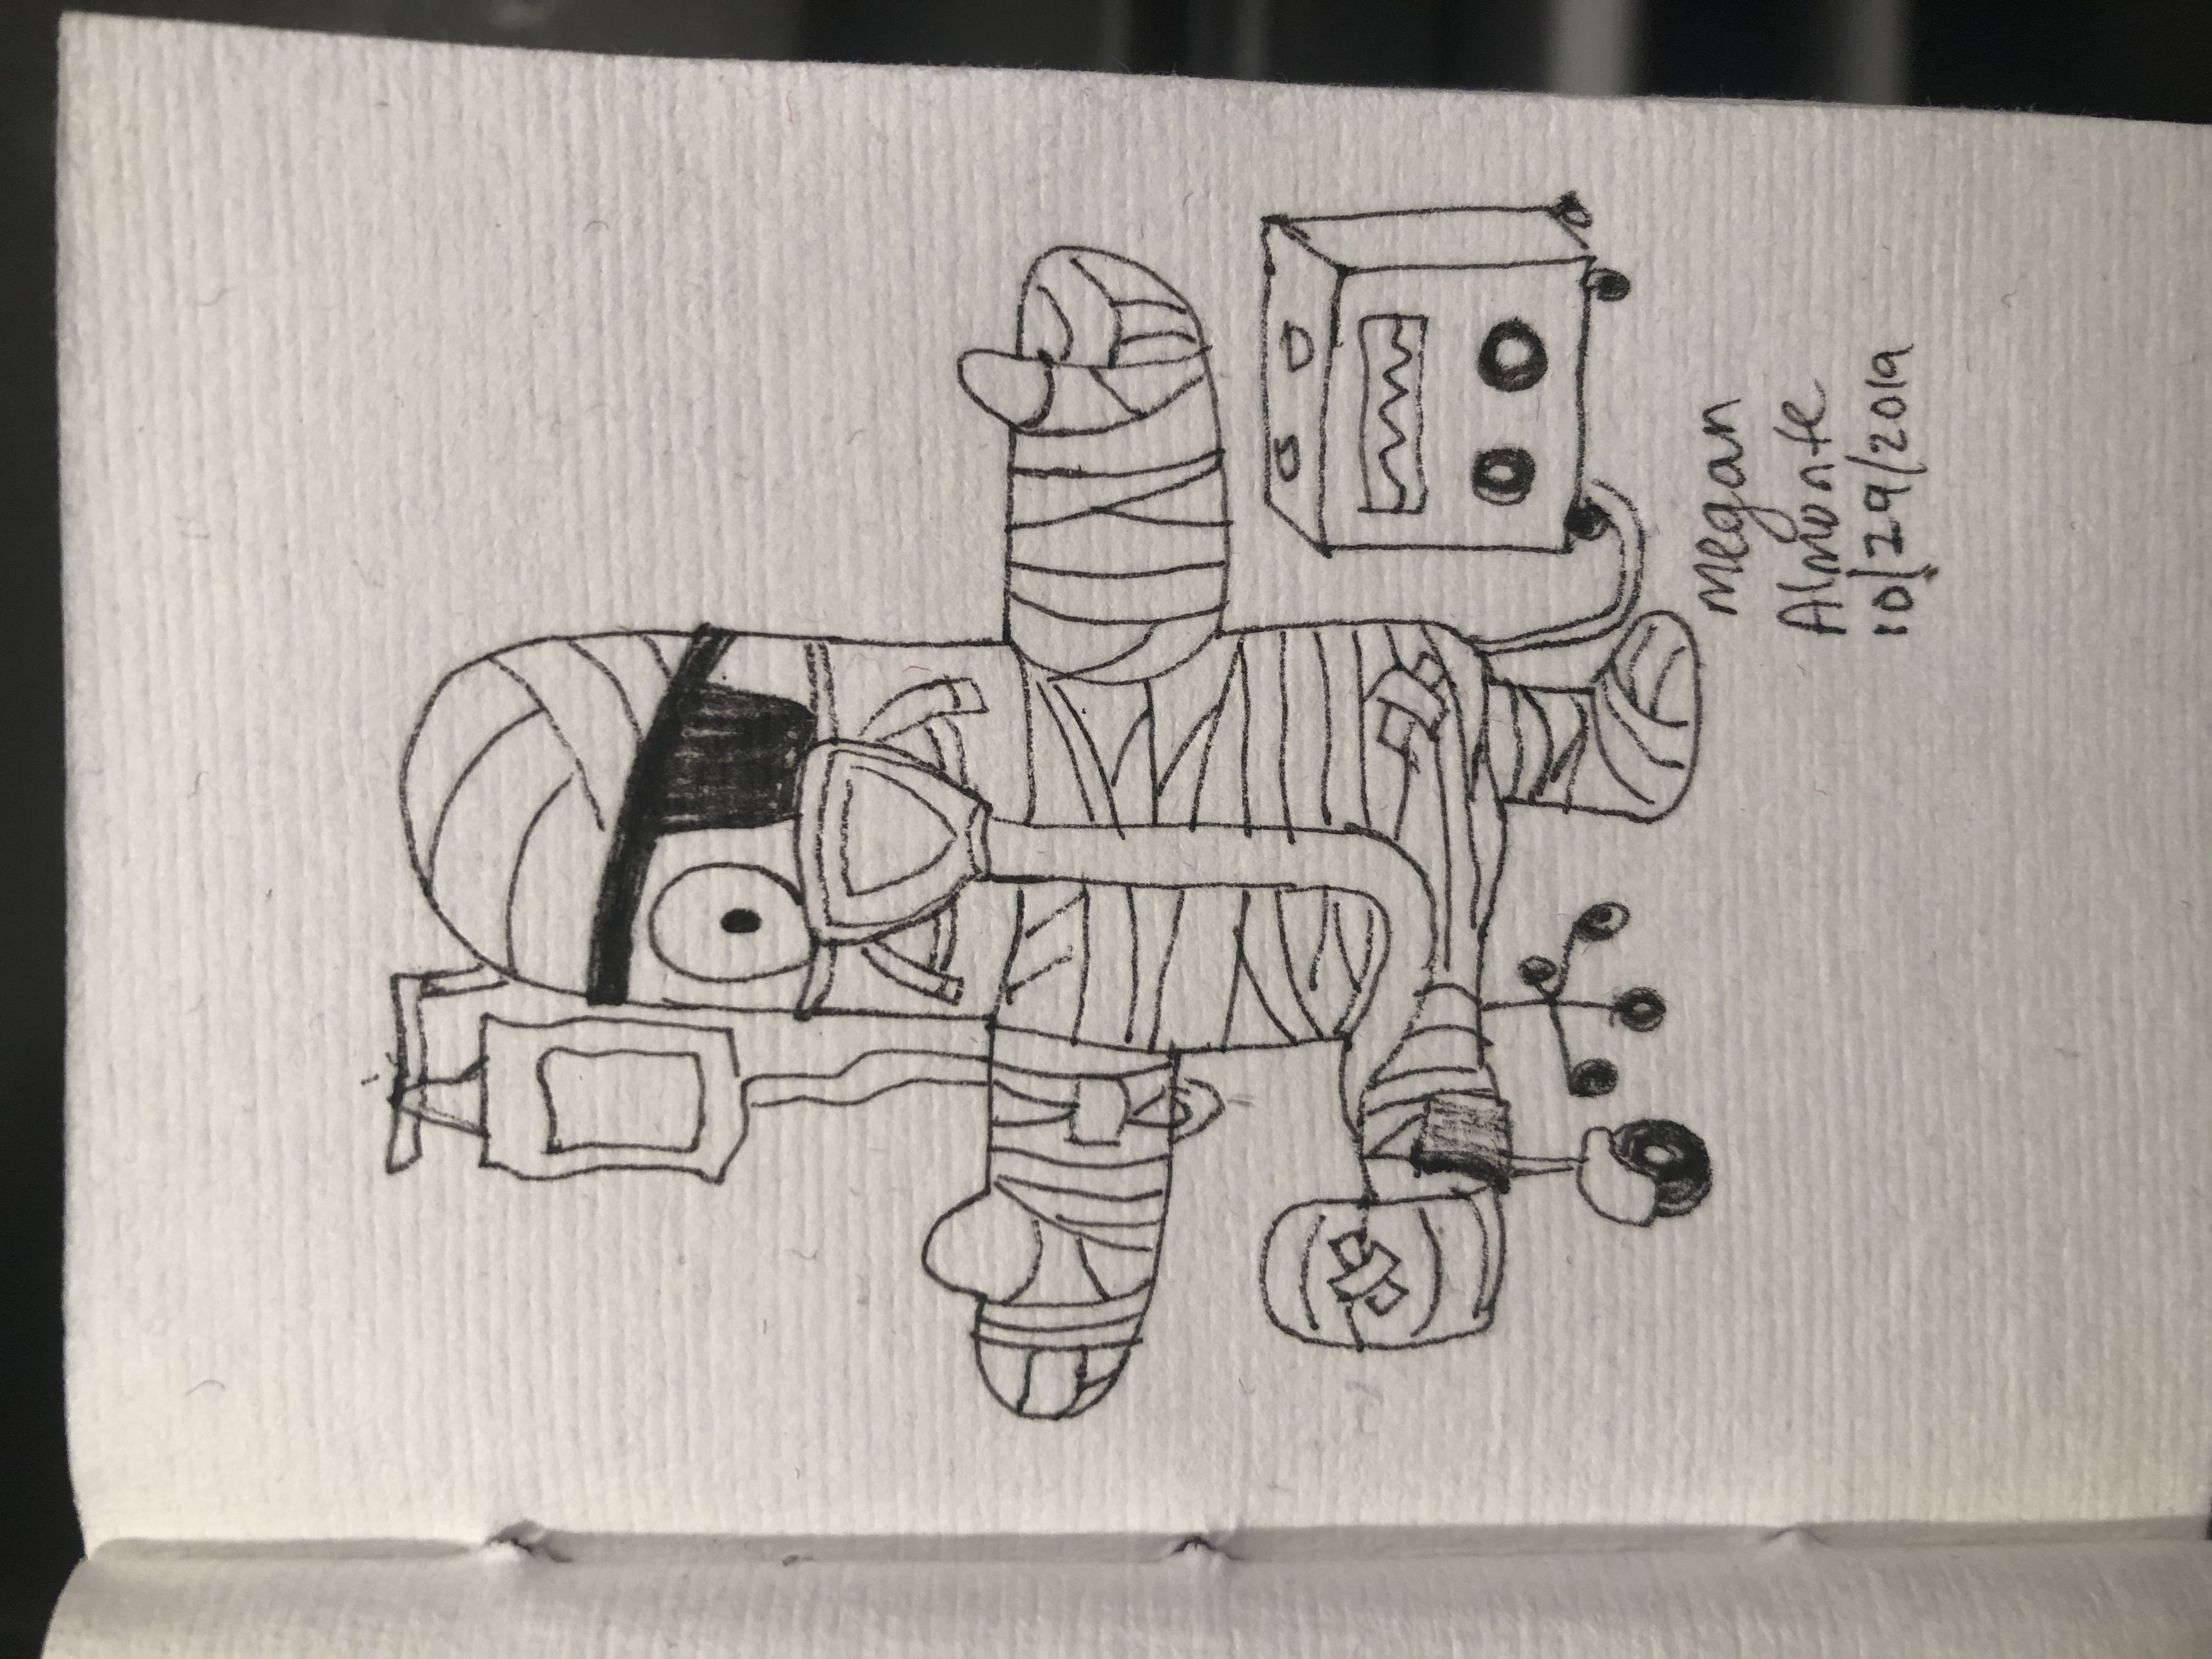 Megan
Almonte
10/29/2019